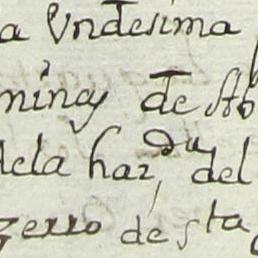 a Undesima
minas de
dela haz.da del
zerro de sta